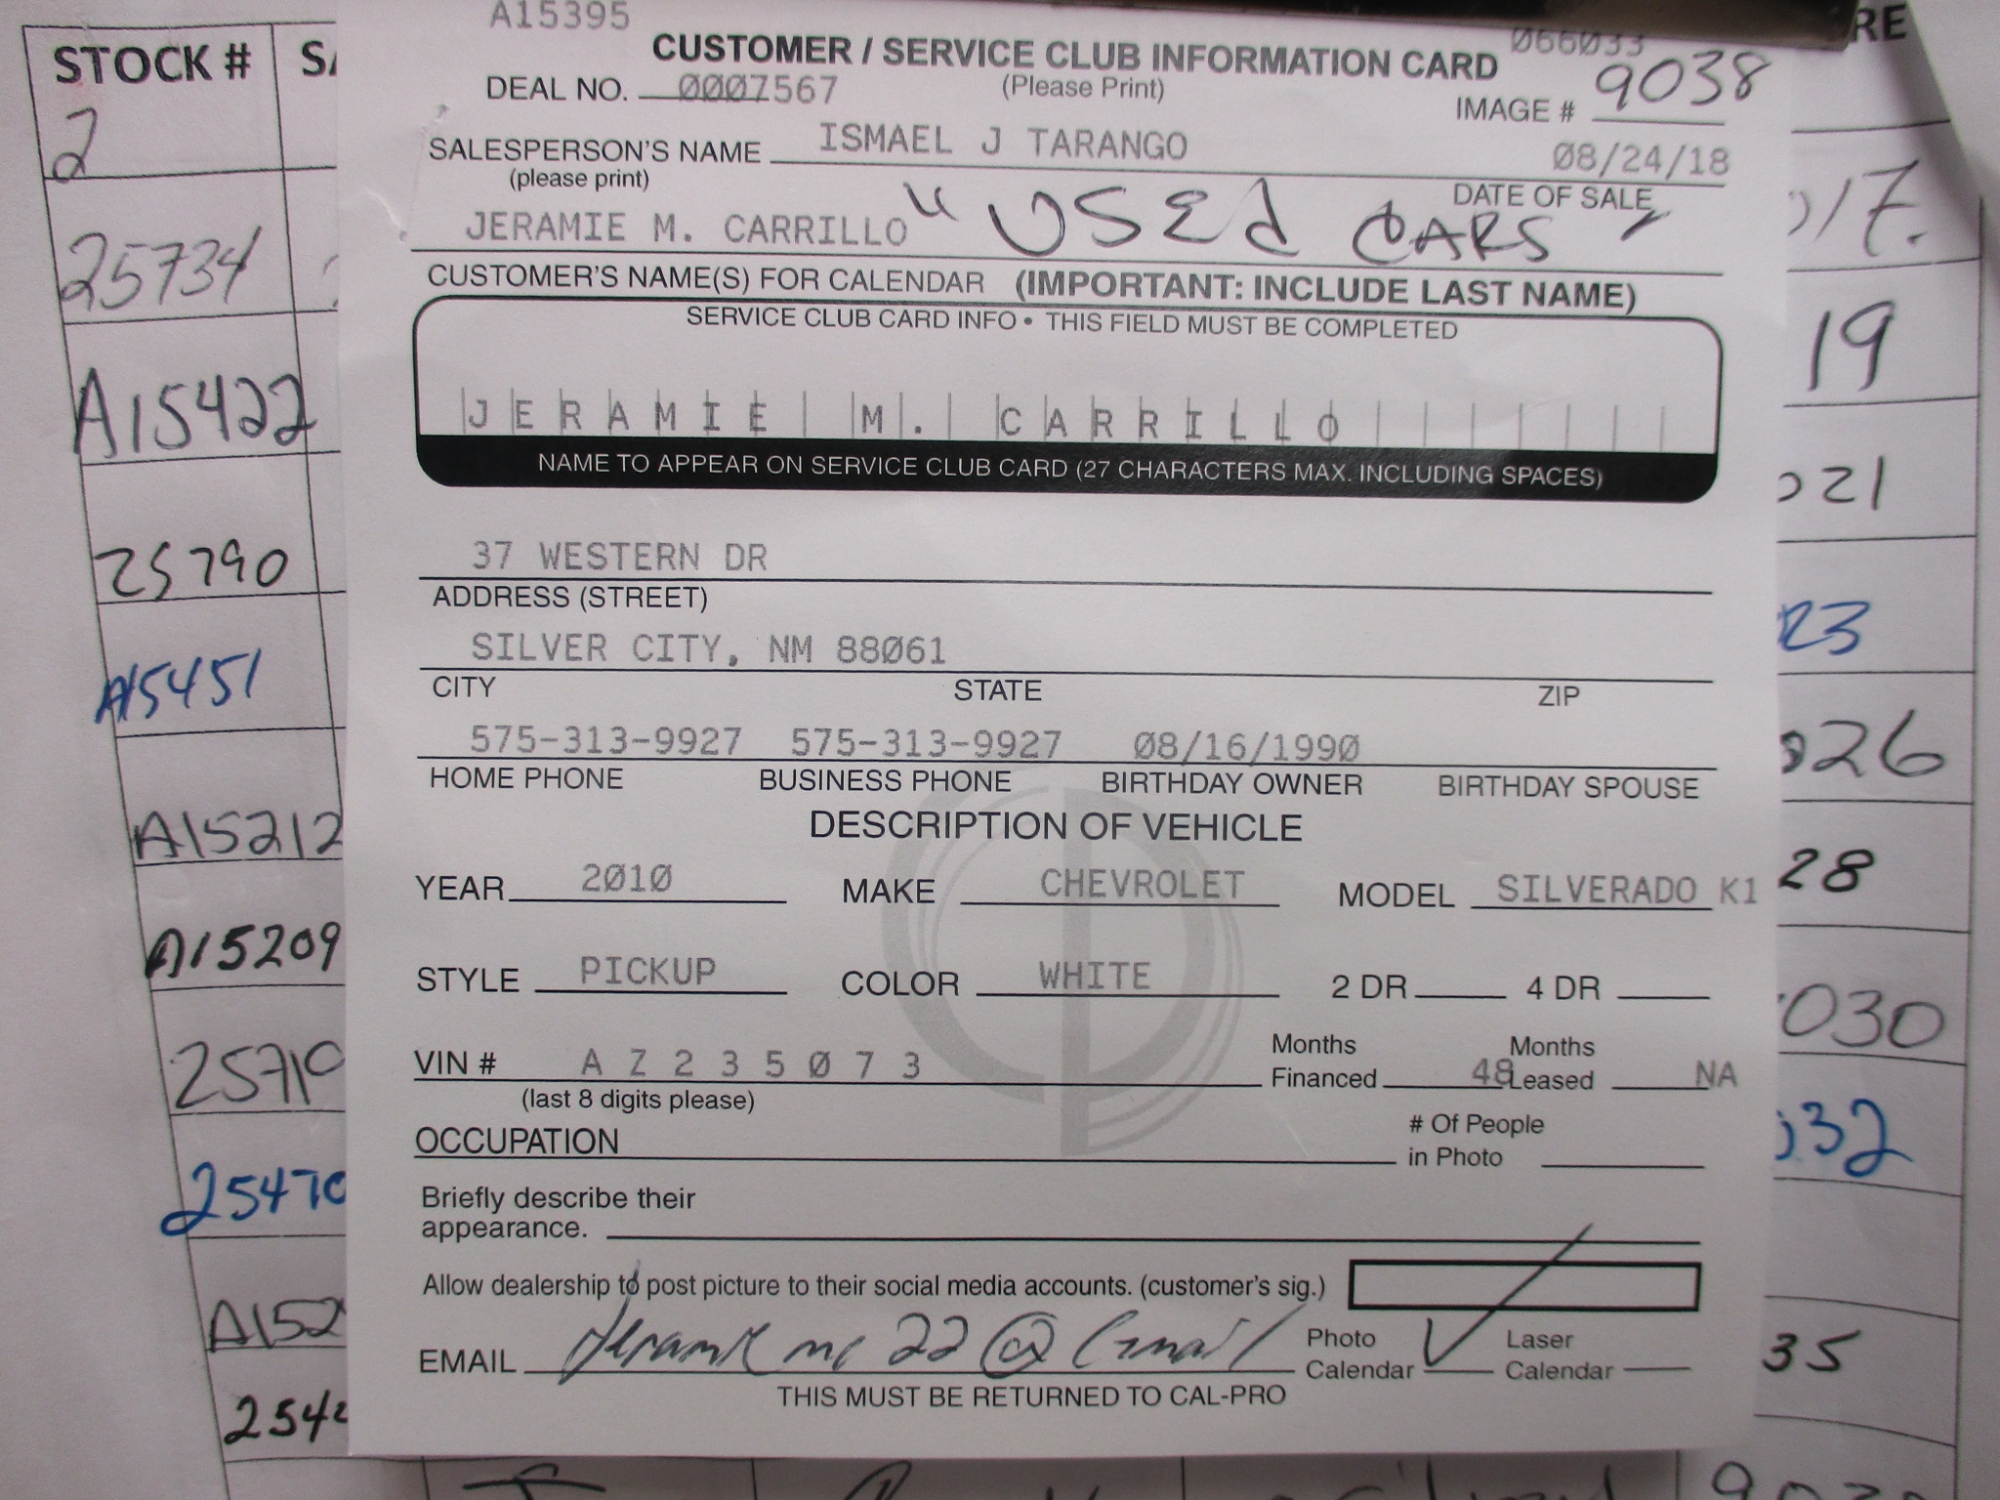 A15395
066033
CUSTOMER / SERVICE CLUB INFORMATION CARD
DEAL NO. 0007567 (Please Print) IMAGE # 9038
SALESPERSON'S NAME ISMAEL J TARANGO 08/24/18
(please print) DATE OF SALE
JERAMIE M. CARRILLO "USED CARS"
CUSTOMER'S NAME(S) FOR CALENDAR (IMPORTANT: INCLUDE LAST NAME)
SERVICE CLUB CARD INFO • THIS FIELD MUST BE COMPLETED
JERAMIE M. CARRILLO
NAME TO APPEAR ON SERVICE CLUB CARD (27 CHARACTERS MAX. INCLUDING SPACES)
37 WESTERN DR
ADDRESS (STREET)
SILVER CITY, NM 88061
CITY STATE ZIP
575-313-9927 575-313-9927 08/16/1990
HOME PHONE BUSINESS PHONE BIRTHDAY OWNER BIRTHDAY SPOUSE
DESCRIPTION OF VEHICLE
YEAR 2010 MAKE CHEVROLET MODEL SILVERADO K1
STYLE PICKUP COLOR WHITE 2 DR 4 DR
VIN # A Z 2 3 5 0 7 3 Months Financed 48 Months Leased NA
(last 8 digits please)
OCCUPATION # Of People in Photo
Briefly describe their
appearance.
Allow dealership to post picture to their social media accounts. (customer's sig.)
EMAIL 22@Gmail Photo Calendar Laser Calendar
THIS MUST BE RETURNED TO CAL-PRO
STOCK #
2
25734
A15422
25790
A15451
A15212
A15209
25710
25470
A152
254
RE
17.
19
21
23
26
28
030
32
35